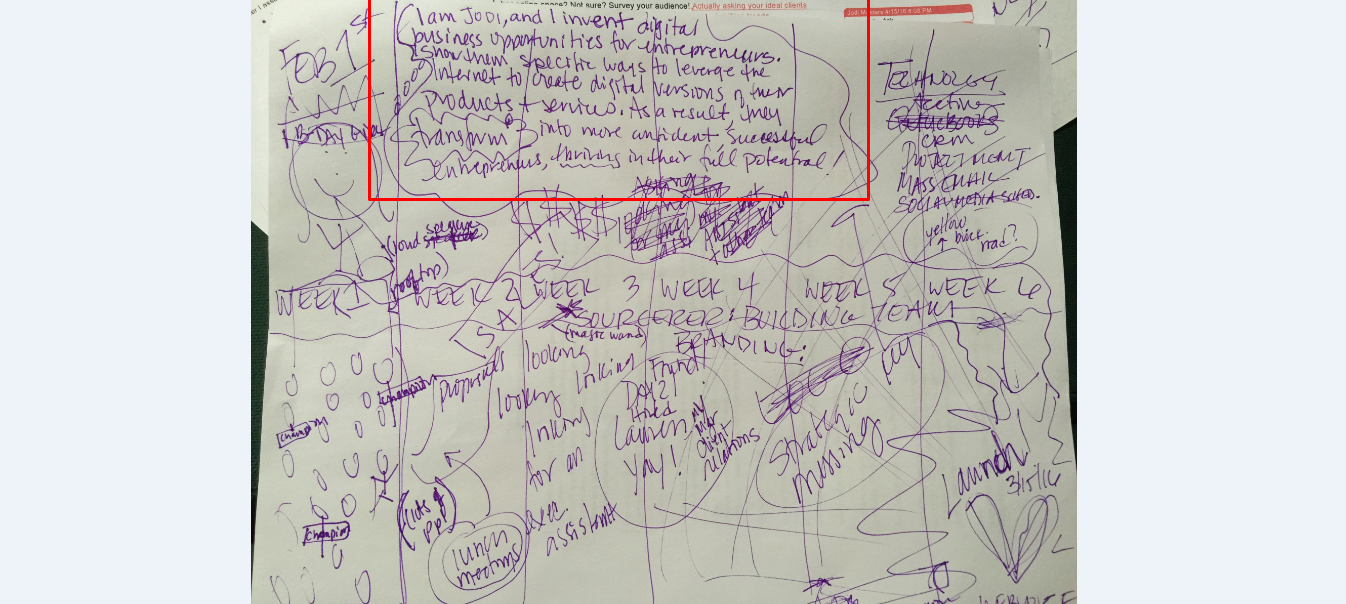 aling space? Not sure? Survey your audience! Actually asking your ideal clients
Jodi
4/15/16
PM
FEB 1st
I am JODI, and I invent digital
business opportunities for entrepreneurs.
I show them specific ways to leverage the
Internet to create digital versions of their
products + services. As a result, they
transform into more confident, successful
entrepreneurs, thriving in their full potential!
TECHNOLOGY
Active
CRM
PROJECT MGMT
MASS EMAIL
SOCIAL MEDIA SCHED.
yellow
brick
road?
B-DAY
(loud
rooftop)
$$$$
WEEK 1 WEEK 2 WEEK 3 WEEK 4 WEEK 5 WEEK 6
SOURCERER: BUILDING TEAM
(magic wand)
BRANDING:
champion
champion
champion
proposals
looking
looking
linking
linking
for an
exec.
assistant
French
DAY 2!
Hired
Lauren
Yay!
my
client
relations
Strategic
missing
Launch
3/15/16
(lots of
ppl)
lunch
meetings